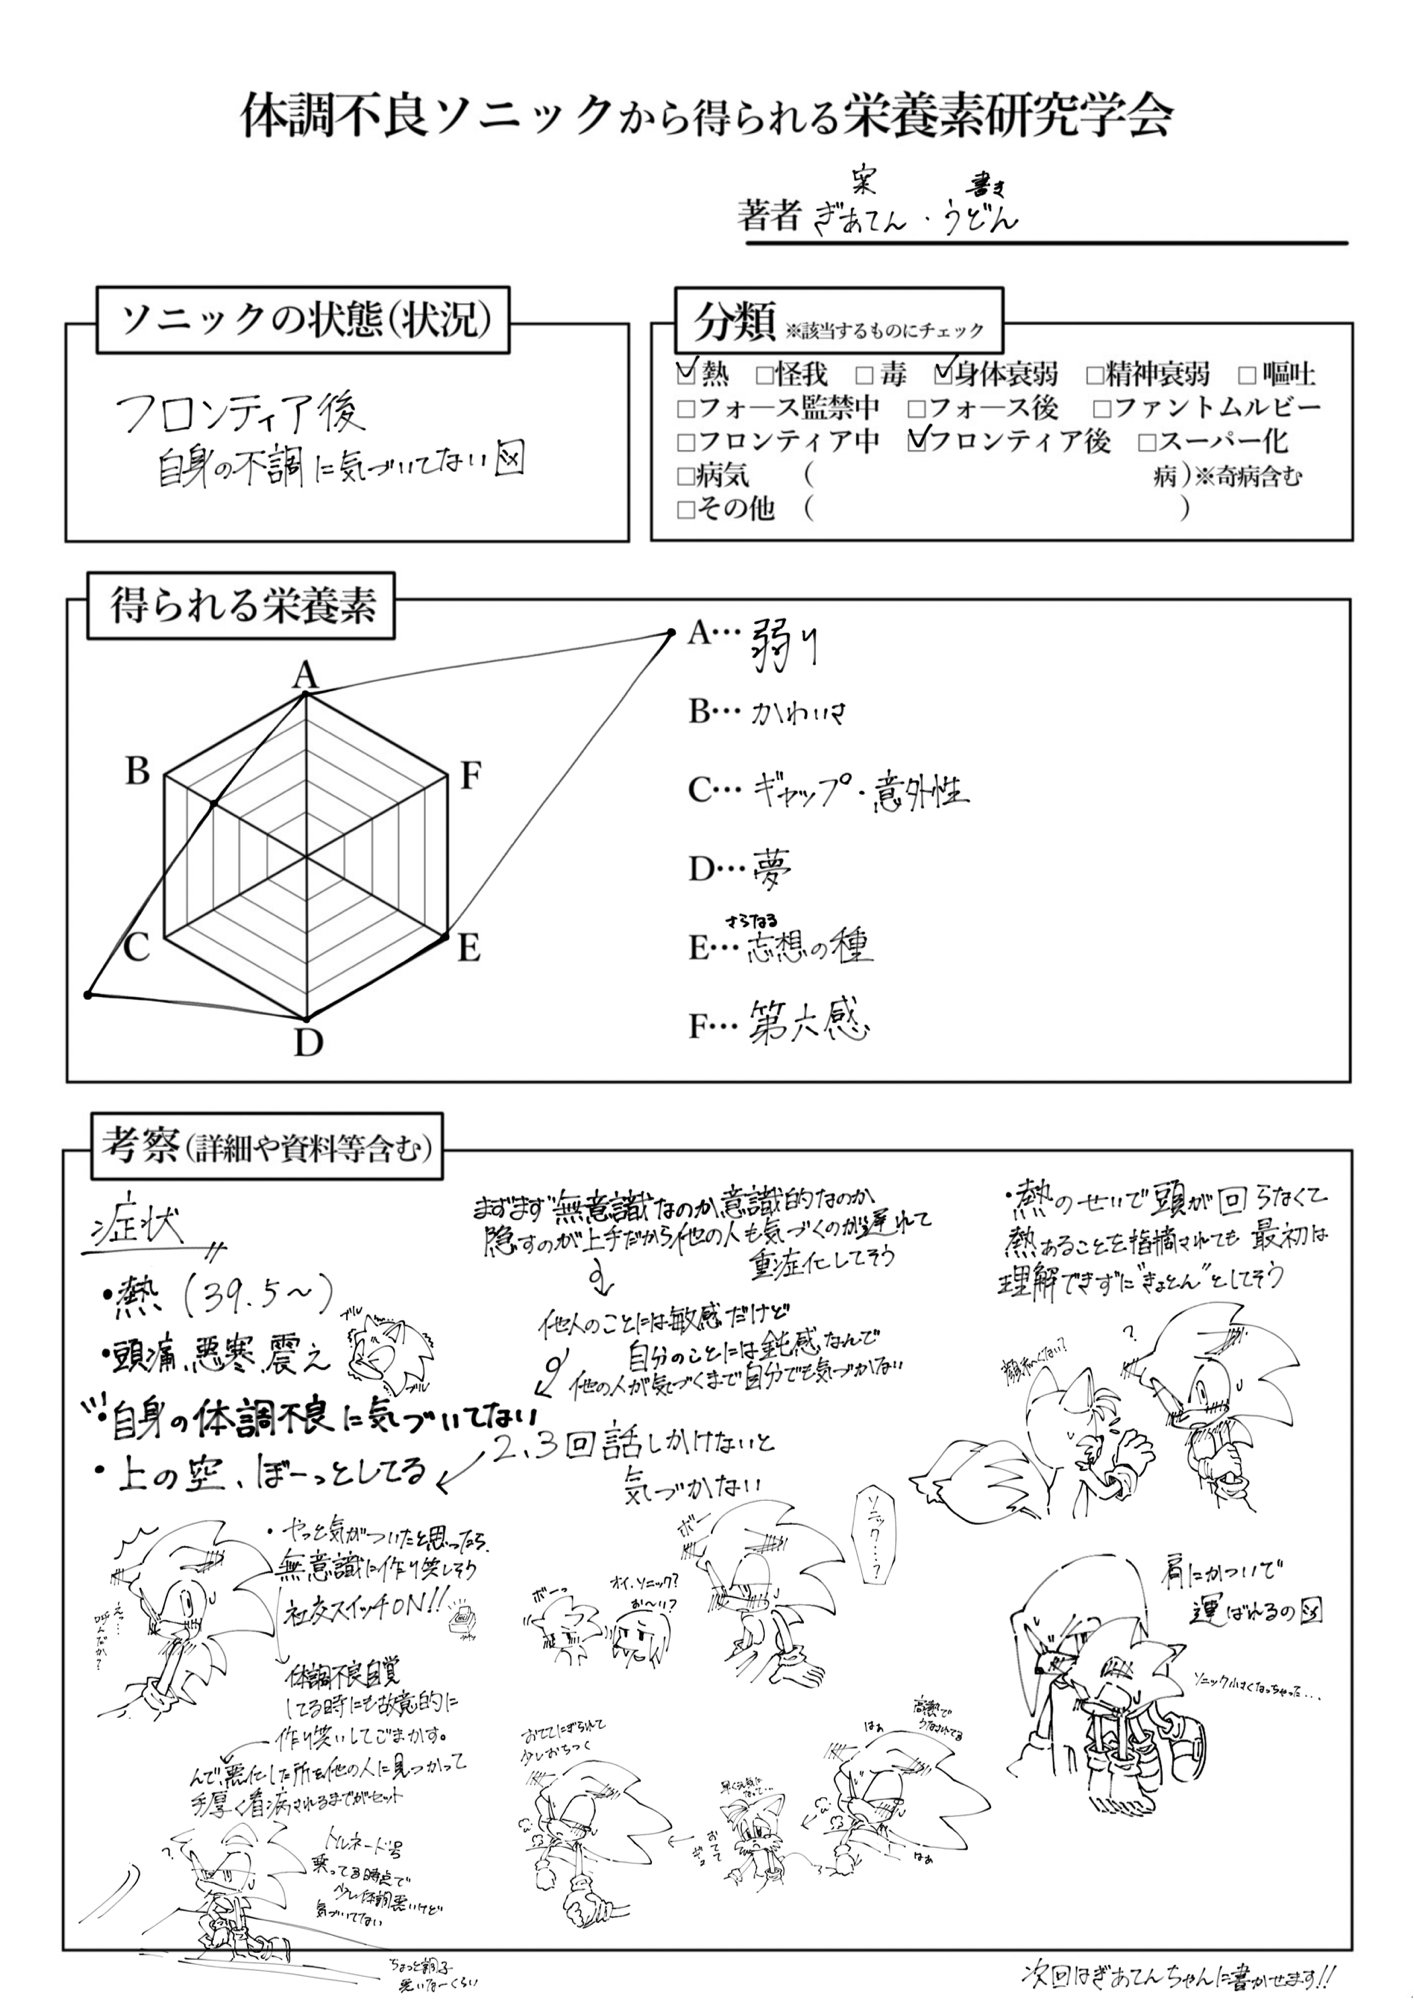 体調不良ソニックから得られる栄養素研究学会
案 書き
著者 ぎあてん・うどん
ソニックの状態(状況)
フロンティア後
自身の不調に気づいてない図
分類 ※該当するものにチェック
☑熱 □怪我 □毒 ☑身体衰弱 □精神衰弱 □嘔吐
□フォース監禁中 □フォース後 □ファントムルビー
□フロンティア中 ☑フロンティア後 □スーパー化
□病気 ( 病)※奇病含む
□その他 ( )
得られる栄養素
A
B
C
D
E
F
A…弱り
B…かわいさ
C…ギャップ・意外性
D…夢
さらなる
E…志想の種
F…第六感
考察(詳細や資料等含む)
症状
・熱(39.5〜)
・頭痛、悪寒、震え
ブル
ブル
・自身の体調不良に気づいてない
・上の空、ぼーっとしてる
2、3回話しかけないと
気づかない
まずまず無意識なのか意識的なのか
隠すのが上手だから他の人も気づくのが遅れて
重症化してそう
他人のことには敏感だけど
自分のことには鈍感なんで
他の人が気づくまで自分でも気づかない
・熱のせいで頭が回らなくて
熱あることを指摘されても最初は
理解できずに"きょとん"としてそう
顔赤くない?
?
・やっと気がついたと思ったら、
無意識に作り笑しそう
社交スイッチON!!
体調不良自覚
してる時にも故意的に
作り笑いしてごまかす。
んで、悪化した所を他の人に見つかって
手厚く看病されるまでがセット
えっ…
よんだか?
ボーっ
オイ、ソニック?
お〜い?
ボー
ソニック…?
肩にかついで
運ばれるの図
ソニック小さくなっちゃった...
おててにぎられて
少しおちつく
早く元気に
なって…
おてて
ぎゅ
高熱で
うなされてる
はぁ
はぁ
?
トルネード号
乗ってる時点で
少し体調悪いけど
気づいてない
ちょっと調子
悪いなーくらい
次回はぎあてんちゃんに書かせます!!